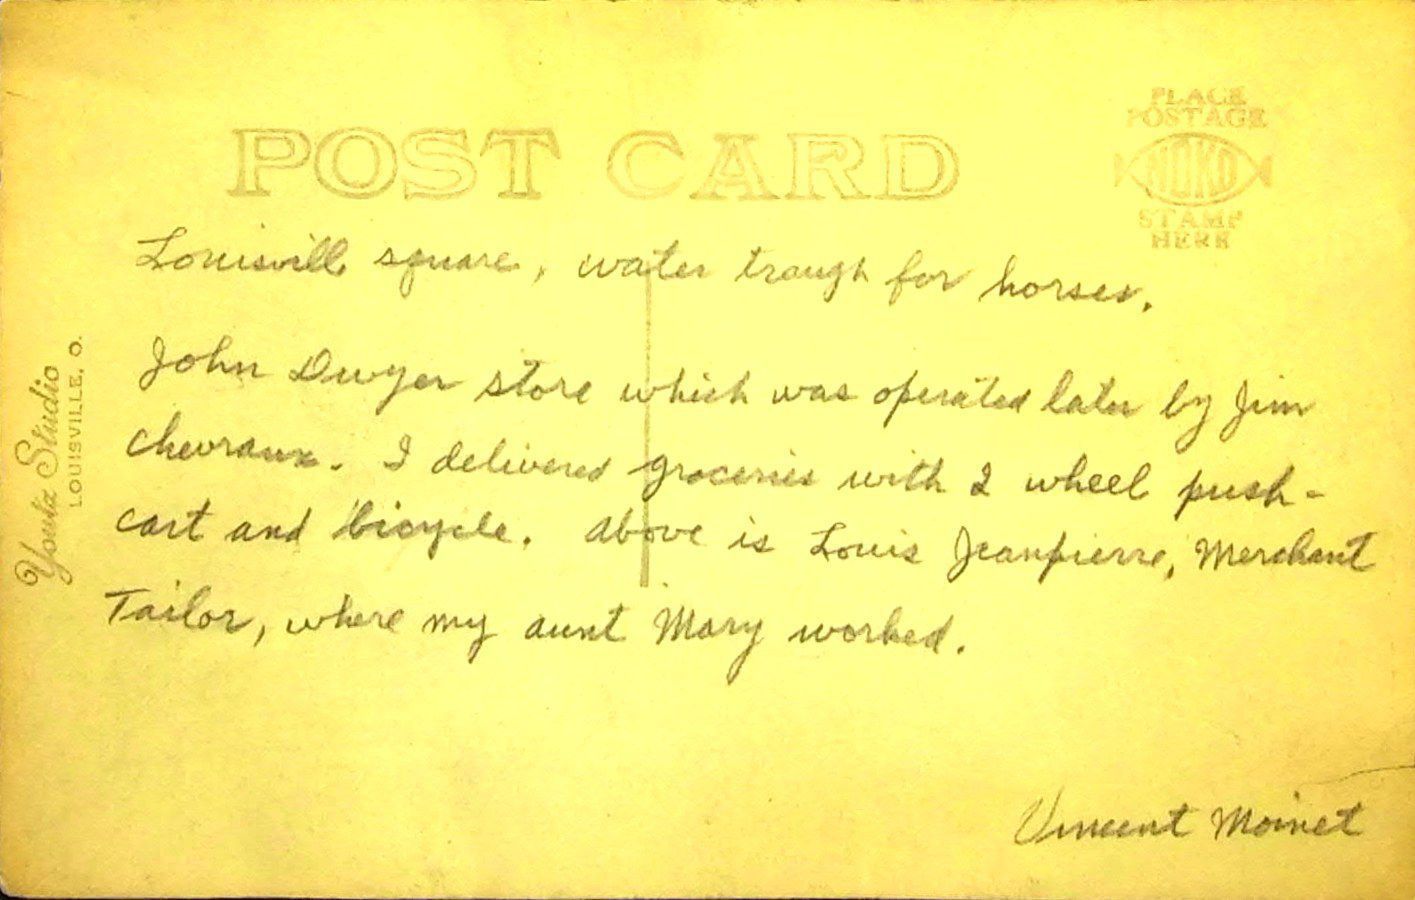 POST CARD
PLACE
POSTAGE
NOKO
STAMP
HERE
Louisvill square, water trough for horses.
John Dwyer store which was operated later by Jim
Chevraux. I delivered groceries with 2 wheel push-
cart and bicycle. Above is Louis Jeanpierre, Merchant
Tailor, where my aunt Mary worked.
Vincent Moinet
Yontz Studio
LOUISVILLE, O.